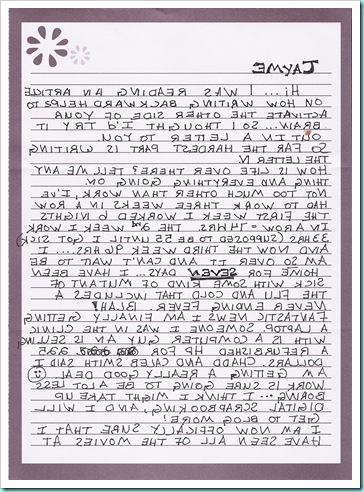 JAYME
Hi... I WAS READING AN ARTICLE
ON HOW WRITING BACKWARD HELPS TO
ACTIVATE THE OTHER SIDE OF YOUR
BRAIN... SO I THOUGHT I'D TRY IT
OUT IN A LETTER TO YOU.
SO FAR THE HARDEST PART IS WRITING
THE LETTER N
HOW IS LIFE OVER THERE? TELL ME ANY
THING AND EVERYTHING GOING ON.
NOT TOO MUCH OTHER THAN WORK, I'VE
HAD TO WORK THREE WEEKS IN A ROW
THE FIRST WEEK I WORKED 6 NIGHTS
IN A ROW = 74 HRS. THE 2nd WEEK I WORK
HRS (SUPPOSED TO BE 55 UNTIL I GOT SICK)
AND NOW THE THIRD WEEK 96 HRS.... I
AM SO OVER IT AND CAN'T WAIT TO BE
HOME FOR SEVEN DAYS... I HAVE BEEN
SICK WITH SOME KIND OF MUTANT OF
THE FLU AND COLD THAT INCLUDES A
NEVER ENDING FEVER. BLAH!
FANTASTIC NEWS I AM FINALLY GETTING
A LAPTOP. SOMEONE I WAS IN THE CLINIC
WITH IS A COMPUTER GUY AN IS SELLING
A REFURBISHED HP FOR
DOLLARS. CHAD AND CALEB SMITH SAID I
AM GETTING A REALLY GOOD DEAL
WORK IS SURE GOING TO BE A LOT LESS
BORING... I THINK I MIGHT TAKE UP
DIGITAL SCRAPBOOKING, AND I WILL
GET TO BLOG MORE!
I AM NOW OFFICALLY SURE THAT I
HAVE SEEN ALL OF THE MOVIES AT